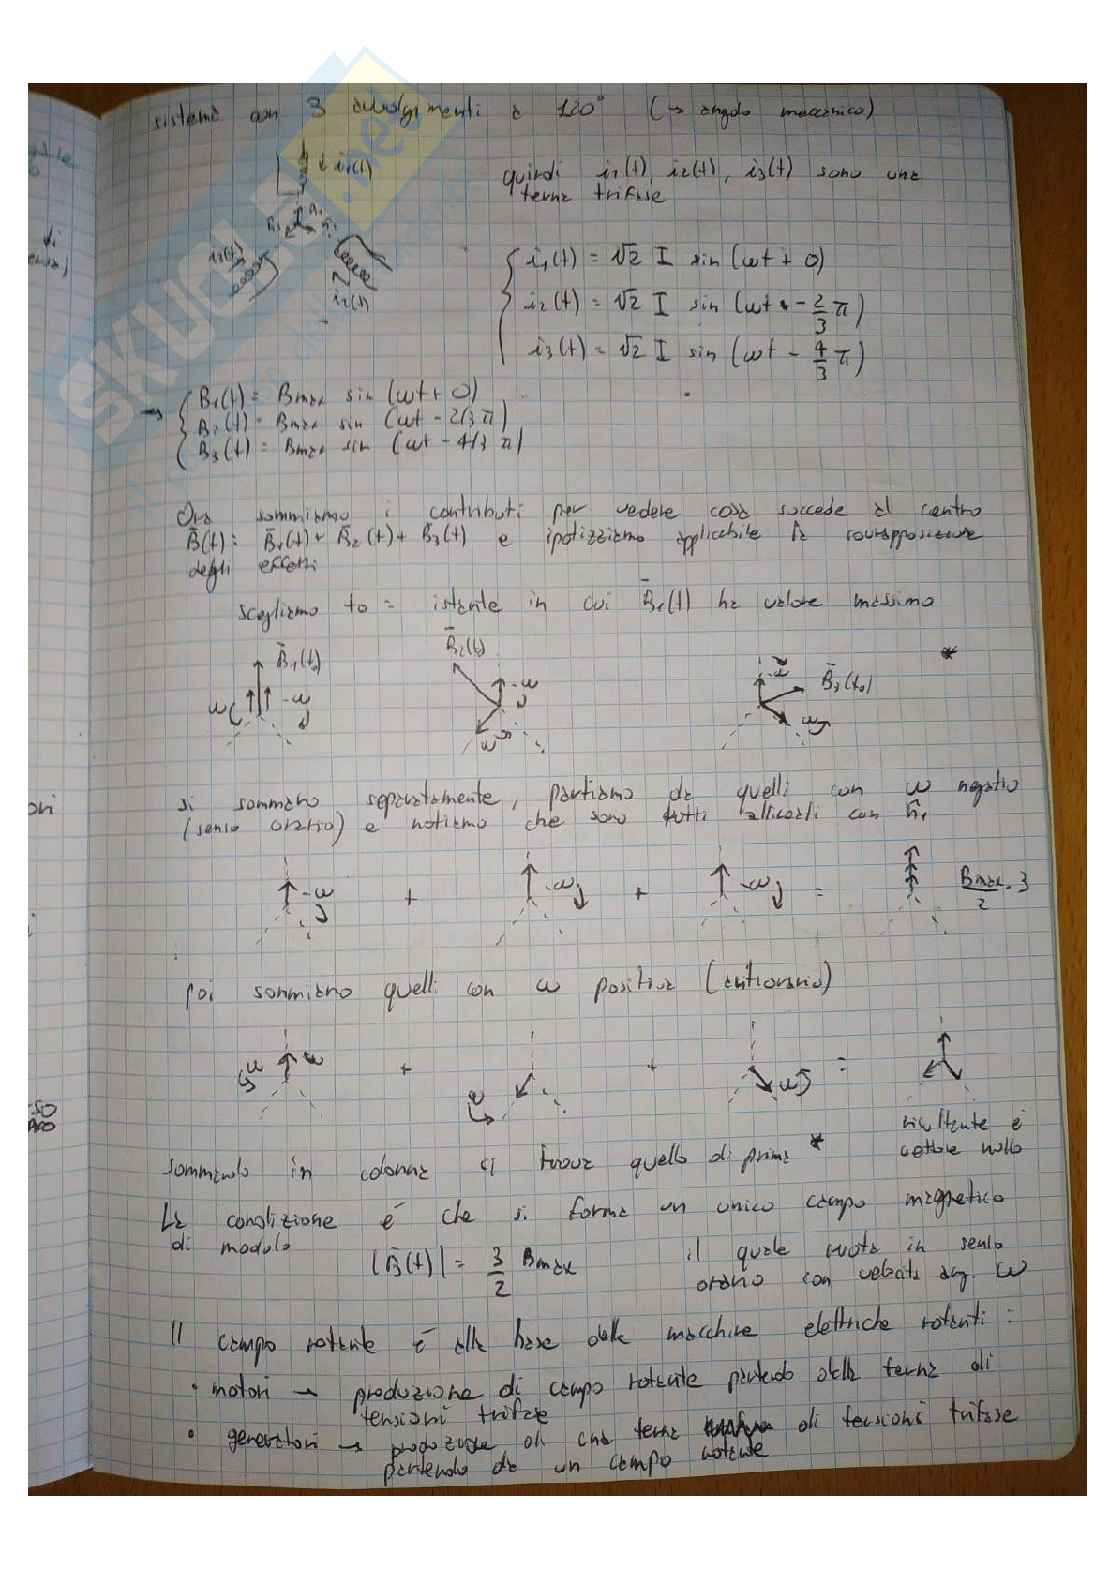 sistema con 3 avvolgimenti a 120° (→ angolo meccanico)
i1(t)
quindi i1(t), i2(t), i3(t) sono una
terna trifase
i3(t)
i2(t)
i1(t) = √2 I sin (ωt + 0)
i2(t) = √2 I sin (ωt - 2/3 π)
i3(t) = √2 I sin (ωt - 4/3 π)
→ B1(t) = Bmax sin (ωt + 0)
B2(t) = Bmax sin (ωt - 2/3 π)
B3(t) = Bmax sin (ωt - 4/3 π)
Ora sommiamo i contributi per vedere cosa succede al centro
B̄(t) = B̄1(t) + B̄2(t) + B̄3(t) e ipotizziamo applicabile la sovrapposizione
degli effetti
scegliamo to = istante in cui B̄1(t) ha valore massimo
B̄1(t0) ω -ω
B̄2(t0) -ω ω
-ω B̄3(t0) ω *
si sommano separatamente, partiamo da quelli con ω negativo
(senso orario) e notiamo che sono tutti allineati con n̂1
-ω + -ω + -ω = Bmax/2 · 3
Poi sommiamo quelli con ω positiva (antiorario)
ω + ω + ω =
risultante è
vettore nullo
sommando in colonna si trova quello di prima *
La condizione è che si forma un unico campo magnetico
di modulo |B̄(t)| = 3/2 Bmax il quale ruota in senso
orario con velocità ang. ω
Il campo rotante è alla base delle macchine elettriche rotanti:
• motori → produzione di campo rotante partendo dalla terna di
tensioni trifase
• generatori → produzione di una terna di tensioni trifase
partendo da un campo rotante
SKUOLA.net